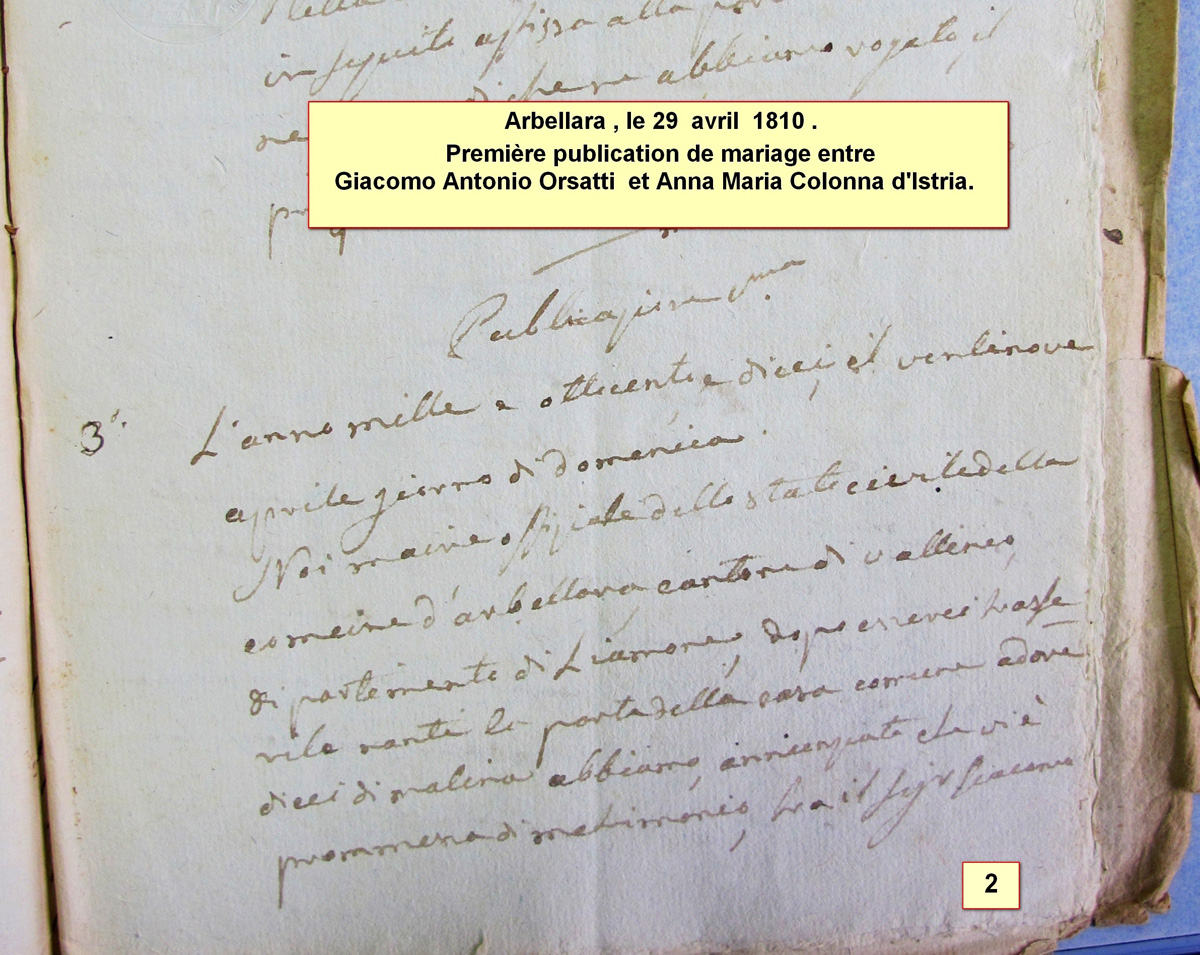 in seguito affissa alla
di che ne abbiamo rogato il
Arbellara , le 29 avril 1810 .
Première publication de mariage entre
Giacomo Antonio Orsatti et Anna Maria Colonna d'Istria.
Publicazione p.ma
3°. L'anno mille e ottocento e dieci, il ventinove
aprile giorno di domenica.
Noi maire offiziale dello stato civile della
comune d'arbellara cantone di vallinco,
dipartimento di Liamone, dopo esserci trasfe
rito nanti la porta della casa comune adore
dieci di matina abbiamo, annunziato che vi è
promessa di matrimonio, tra il sigr Giacomo
2